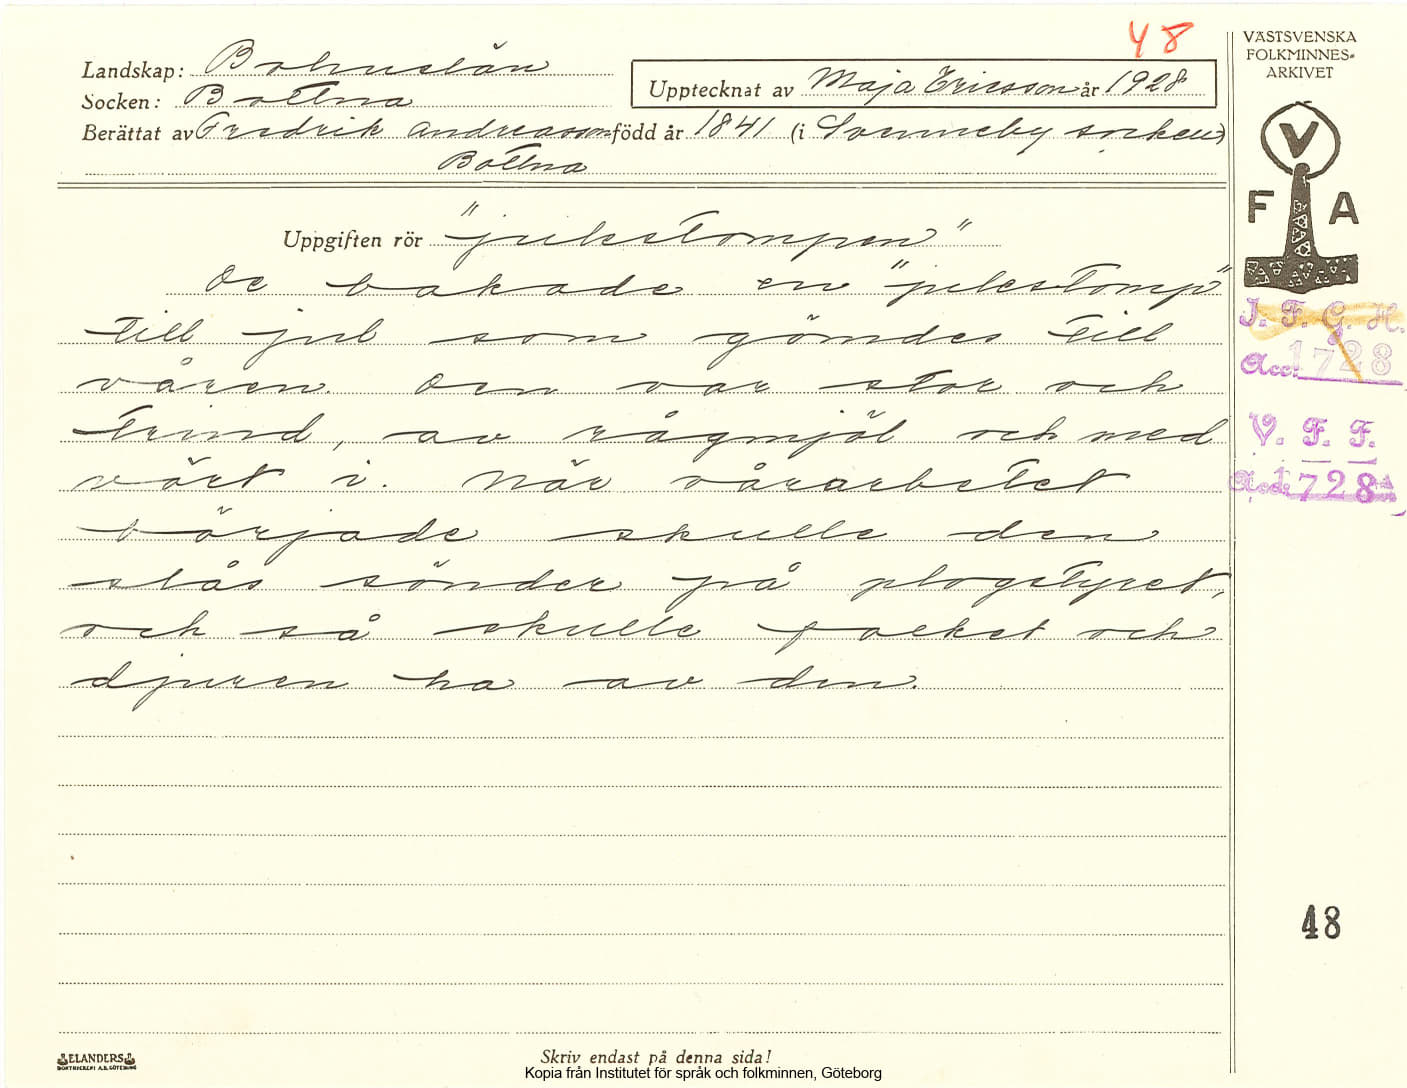 48
VÄSTSVENSKA
FOLKMINNES-
ARKIVET
Landskap: Bohuslän
Socken: Bottna
Upptecknat av Maja Ericsson år 1928
Berättat av Fredrik Andreasson född år 1841 (i Svenneby socken)
Bottna
V
F A
Uppgiften rör "julestompen"
De bakade en "julestomp"
till jul som gömdes till
våren. Den var stor och
trind, av rågmjöl och med
vört i. När vårarbetet
började skulle den
slås sönder på plogstyret,
och så skulle folket och
djuren ha av den.
I. F. G. H.
Acc. 1728
V. F. F.
Acc. 1728
48
ELANDERS
BOKTRYCKERI A.B. GÖTEBORG
Skriv endast på denna sida!
Kopia från Institutet för språk och folkminnen, Göteborg